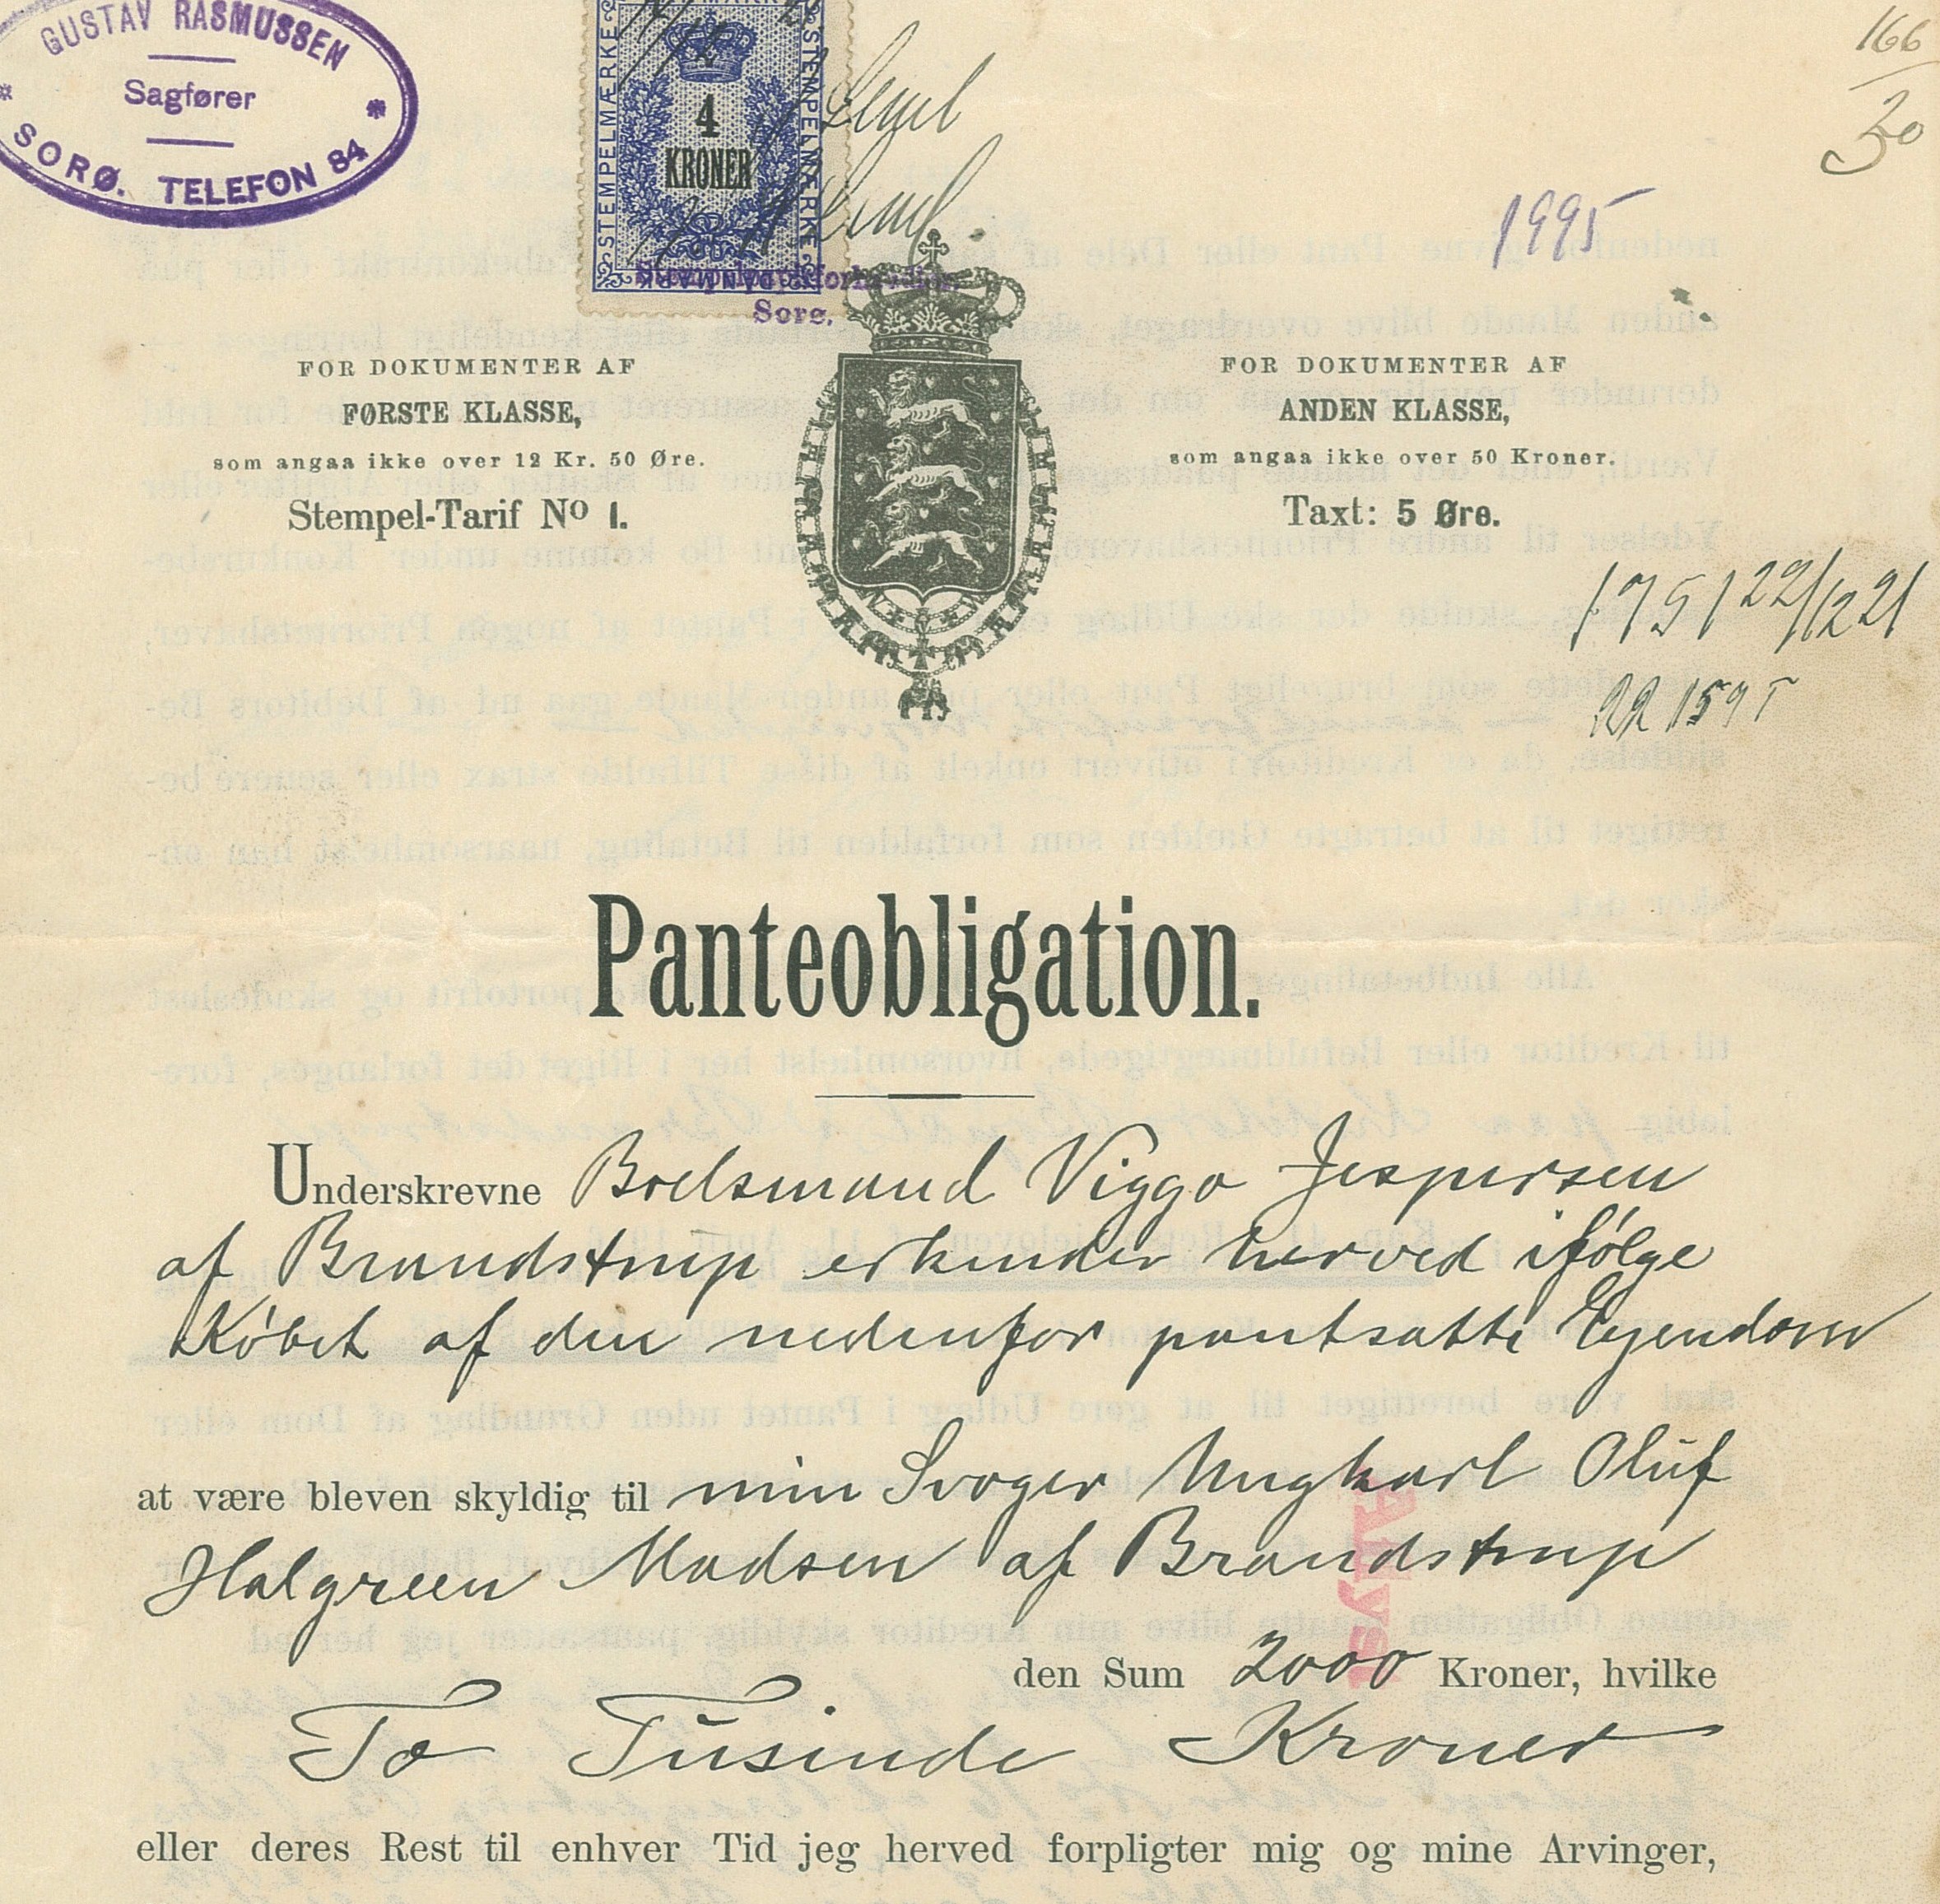 GUSTAV RASMUSSEN
Sagfører
SORØ. TELEFON 84
STEMPELMÆRKE
STEMPELMÆRKE
4
KRONER
DANMARK
Sorø.
166
30
1995
FOR DOKUMENTER AF
FØRSTE KLASSE,
som angaa ikke over 12 Kr. 50 Øre.
Stempel-Tarif No 1.
FOR DOKUMENTER AF
ANDEN KLASSE,
som angaa ikke over 50 Kroner.
Taxt: 5 Øre.
1751 22/12 21
Panteobligation.
Underskrevne Boelsmand Viggo Jespersen
af Brandstrup erkender herved ifølge
Købet af den nedenfor pantsatte Ejendom
at være bleven skyldig til min Svoger Ungkarl Oluf
Halgreen Madsen af Brandstrup
den Sum 2000 Kroner, hvilke
To Tusinde Kroner
eller deres Rest til enhver Tid jeg herved forpligter mig og mine Arvinger,